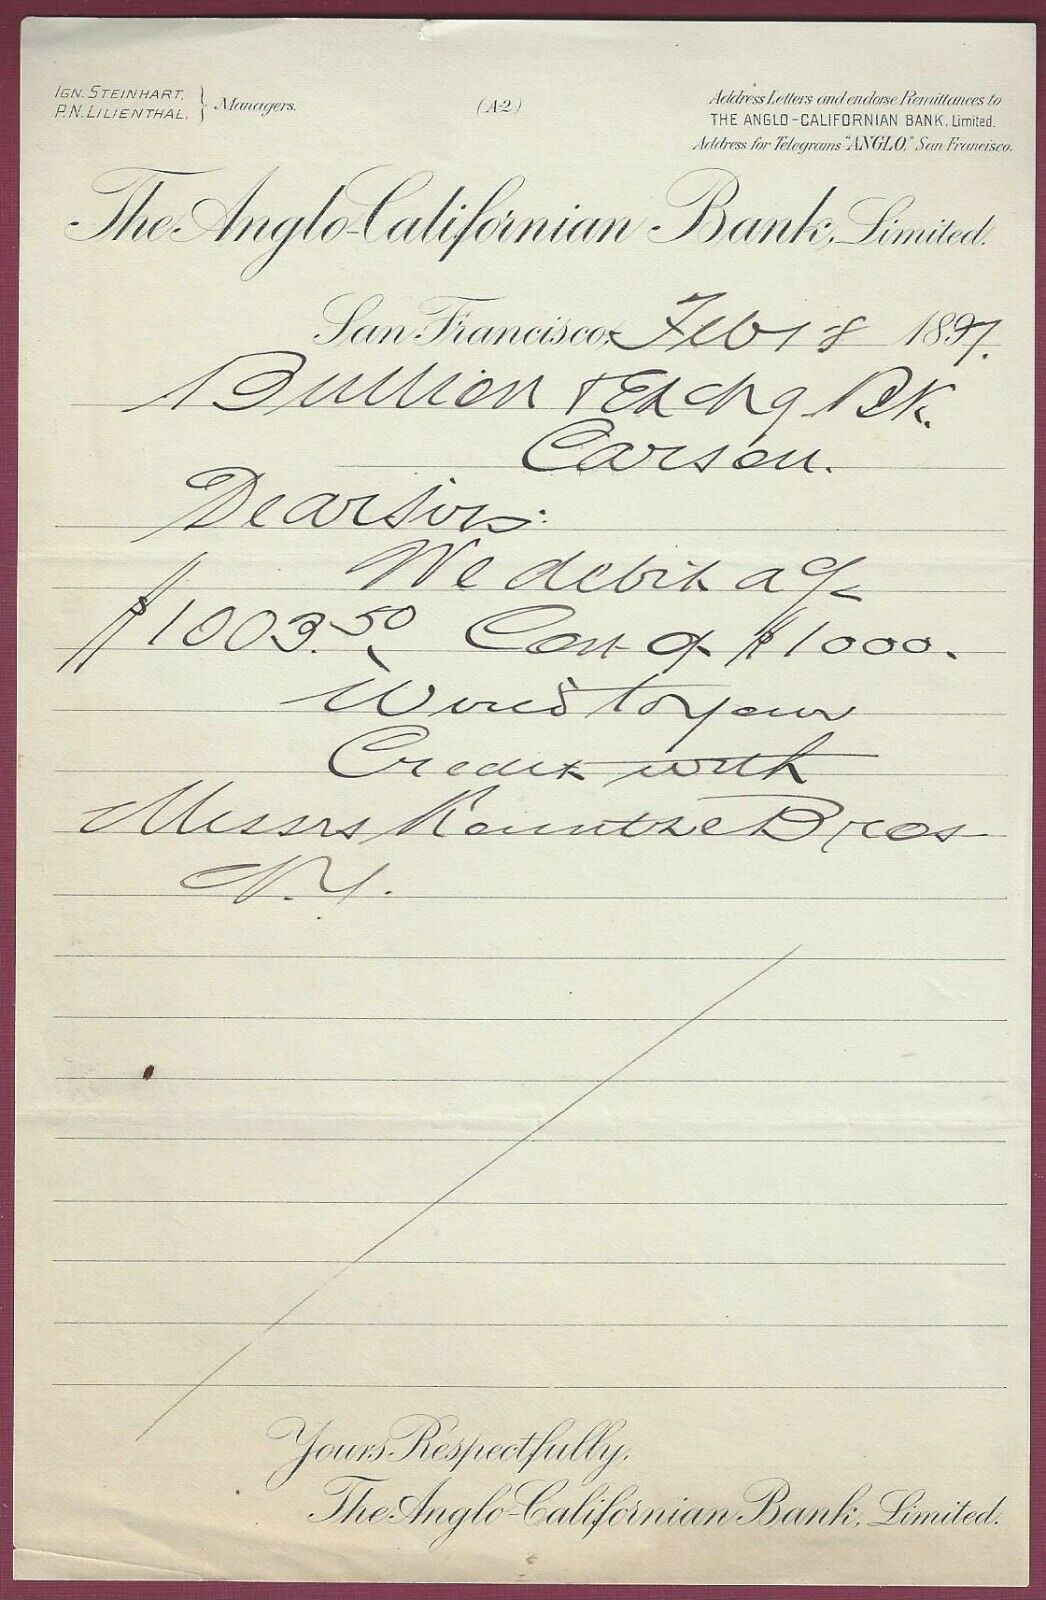 IGN. STEINHART,
P.N. LILIENTHAL, } Managers.
(A-2)
Address Letters and endorse Remittances to
THE ANGLO-CALIFORNIAN BANK, Limited.
Address for Telegrams "ANGLO," San Francisco.
The Anglo-Californian Bank, Limited.
San Francisco, Feb 18 1897.
Bullion & Exchg Bk.
Carson.
Dear Sirs:
We debit a/c
$1003.50 Cost of $1000.
Wired to your
Credit with
Messrs Kountze Bros
N.Y.
Yours Respectfully,
The Anglo-Californian Bank, Limited.